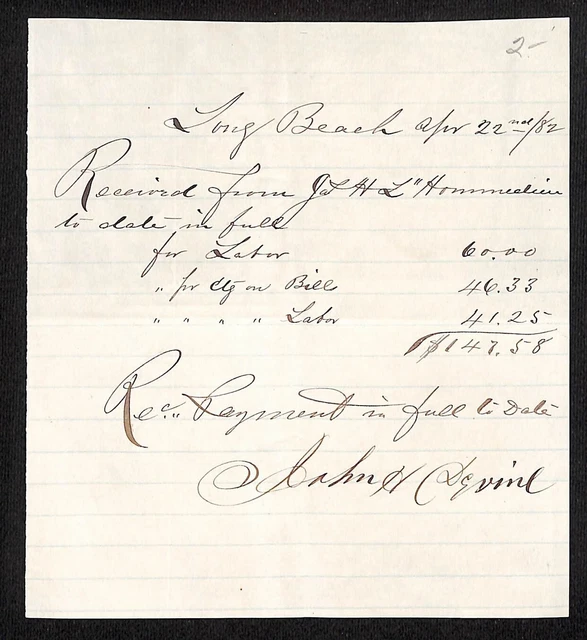 2-
Long Beach Apr 22nd/82
Received from J & H L"Hommedieu
to date in full
for Labor 60.00
" for on Bill 46.33
" " " " Labor 41.25
$147.58
Rec" Payment in full to Date
John H Devine